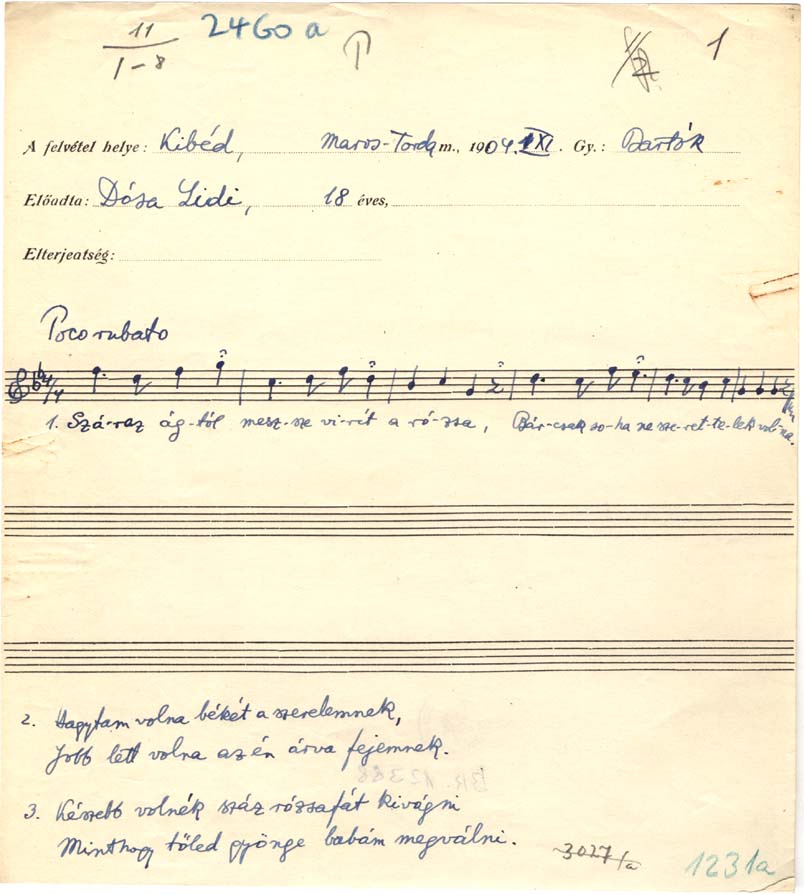 11
1-8
2460 a
1
A felvétel helye: Kibéd, Maros-Torda m., 1904. XI. Gy.: Bartók
Előadta: Dósa Lidi, 18 éves,
Elterjeatség:
Poco rubato
4/4
1. Szá-raz ág-tól mesz-sze vi-rít a ró-zsa, Bár-csak so-ha ne sze-ret-te-lek vol-na.
2. Hagytam volna békét a szerelemnek,
Jobb lett volna az én árva fejemnek.
BR. 12388
3. Készebb volnék száz rózsafát kivágni
Minthogy tőled gyönge babám megválni.
3027/a
1231a